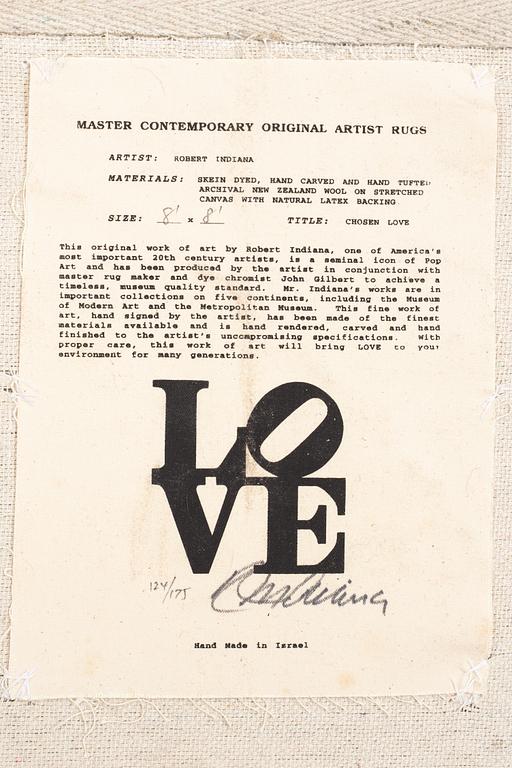 MASTER CONTEMPORARY ORIGINAL ARTIST RUGS
ARTIST: ROBERT INDIANA
MATERIALS: SKEIN DYED, HAND CARVED AND HAND TUFTED
ARCHIVAL NEW ZEALAND WOOL ON STRETCHED
CANVAS WITH NATURAL LATEX BACKING
SIZE: 8' x 8' TITLE: CHOSEN LOVE
This original work of art by Robert Indiana, one of America's
most important 20th century artists, is a seminal icon of Pop
Art and has been produced by the artist in conjunction with
master rug maker and dye chromist John Gilbert to achieve a
timeless, museum quality standard. Mr. Indiana's works are in
important collections on five continents, including the Museum
of Modern Art and the Metropolitan Museum. This fine work of
art, hand signed by the artist, has been made of the finest
materials available and is hand rendered, carved and hand
finished to the artist's uncompromising specifications. With
proper care, this work of art will bring LOVE to your
environment for many generations.
LO
VE
124/175 R Indiana
Hand Made in Israel